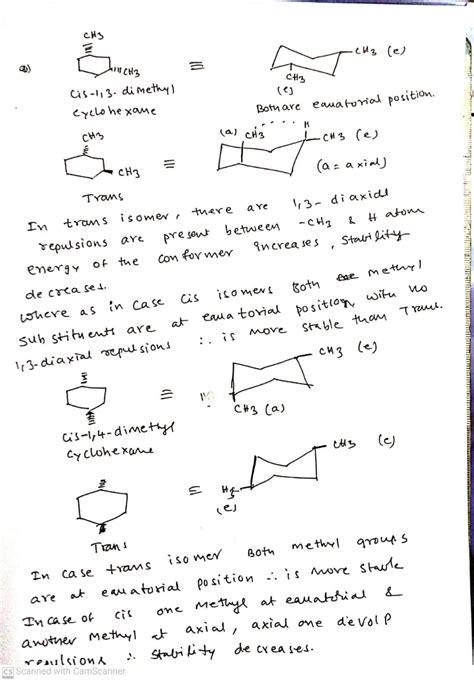 CH3
a)
CH3
≡
CH3 (e)
CH3
(e)
Cis-1,3-dimethyl
cyclohexane
Both are equatorial position.
CH3
(a) CH3
H
CH3 (e)
CH3
≡
(a = axial)
Trans
In trans isomer, there are 1,3-diaxial
repulsions are present between -CH3 & H atom
energy of the conformer increases, Stability
decreases.
where as in case cis isomers both methyl
substituents are at equatorial position, with no
1,3-diaxial repulsions ∴ is more stable than Trans.
≡
CH3 (e)
CH3 (a)
Cis-1,4-dimethyl
cyclohexane
≡
CH3 (e)
H3C
(e)
Trans
In case trans isomer Both methyl groups
are at equatorial position ∴ is more stable
In case of cis one methyl at equatorial &
another methyl at axial, axial one devolp
repulsions ∴ Stability decreases.
CS Scanned with CamScanner